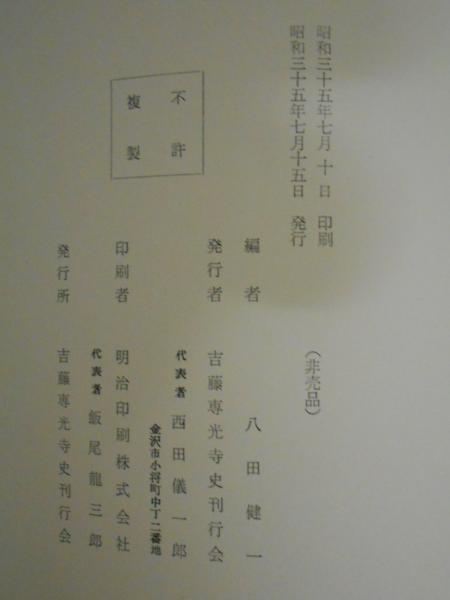 昭和三十五年七月十日 印刷
昭和三十五年七月十五日 発行
(非売品)
編者 八田健一
発行者 吉藤専光寺史刊行会
代表者 西田儀一郎
金沢市小将町中丁二番地
印刷者 明治印刷株式会社
代表者 飯尾龍三郎
発行所 吉藤専光寺史刊行会
不許
複製